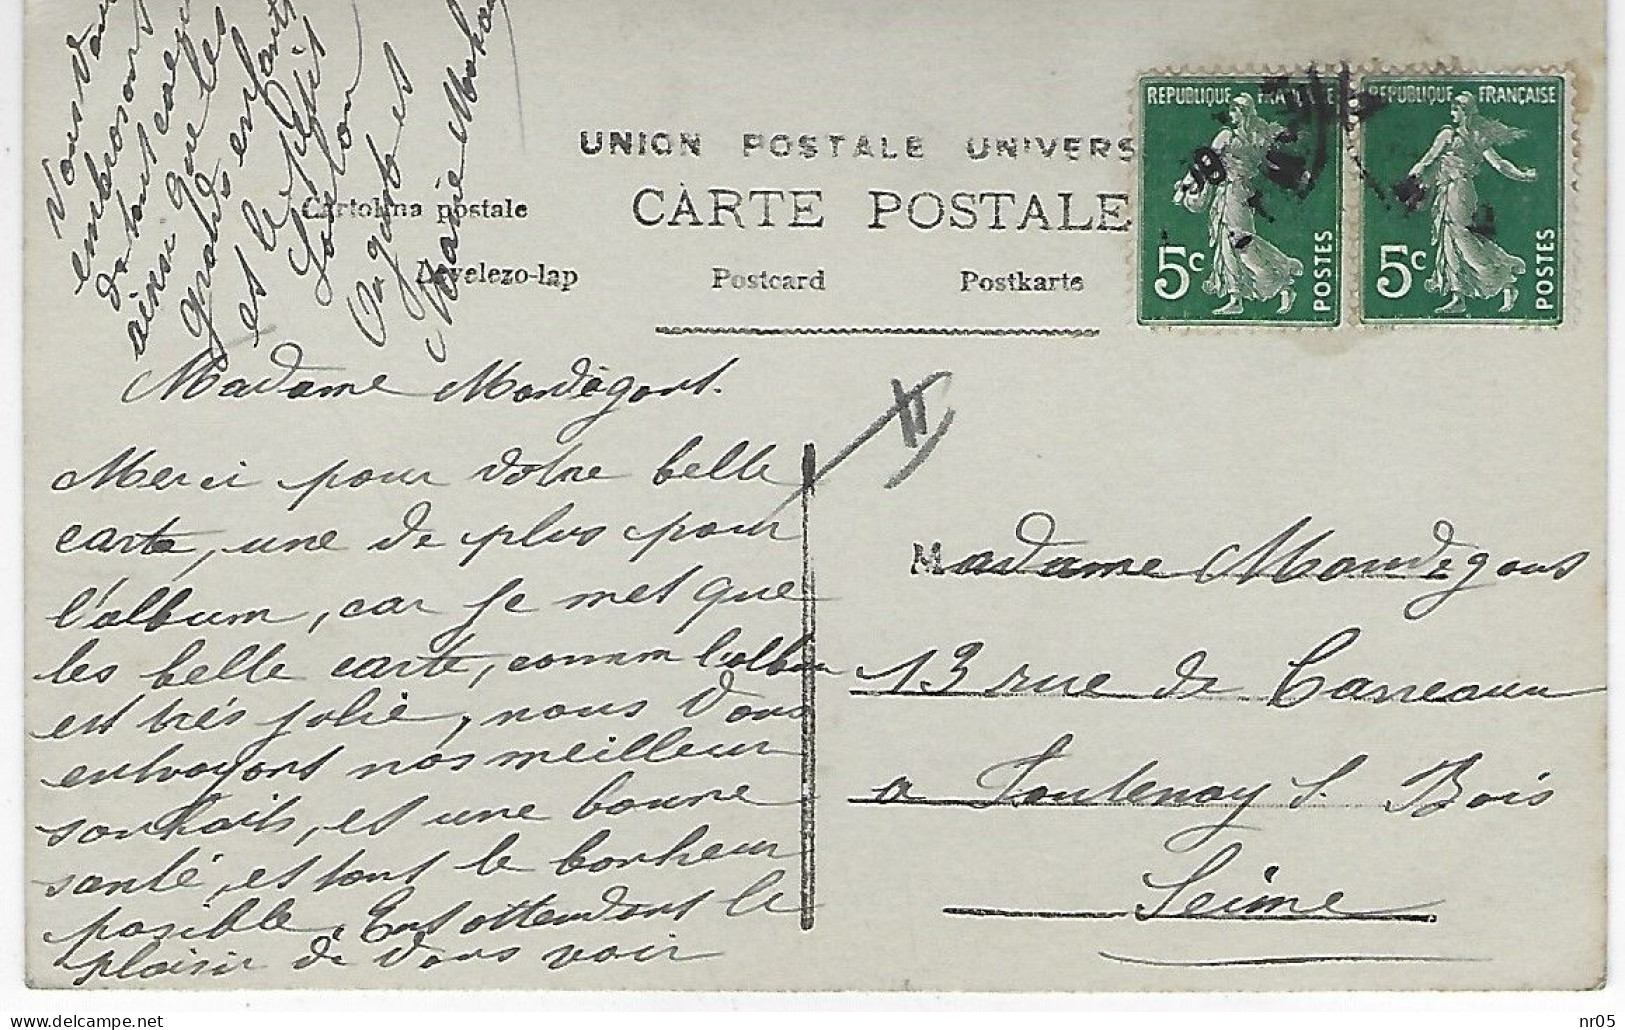 UNION POSTALE UNIVERS
CARTE POSTALE
Cartolina postale
Levelezo-lap
Postcard
Postkarte
REPUBLIQUE FRANÇAISE
5c
POSTES
REPUBLIQUE FRANÇAISE
5c
POSTES
Madame Mandégout.
Merci pour votre belle
carte, une de plus pour
l'album, car je met que
les belle carte, comm l'album
est très jolie, nous vous
envoyons nos meilleur
souhaits, et une bonne
santé, et tout le bonheur
posible, Ent attendant le
plaisir de vous voir
Vous
embrassant
ainsi que les
grands enfants
et le petit
et
Marie
Madame Mandégout
13 rue de
a Fontenay s. Bois
Seine
delcampe.net
nr05